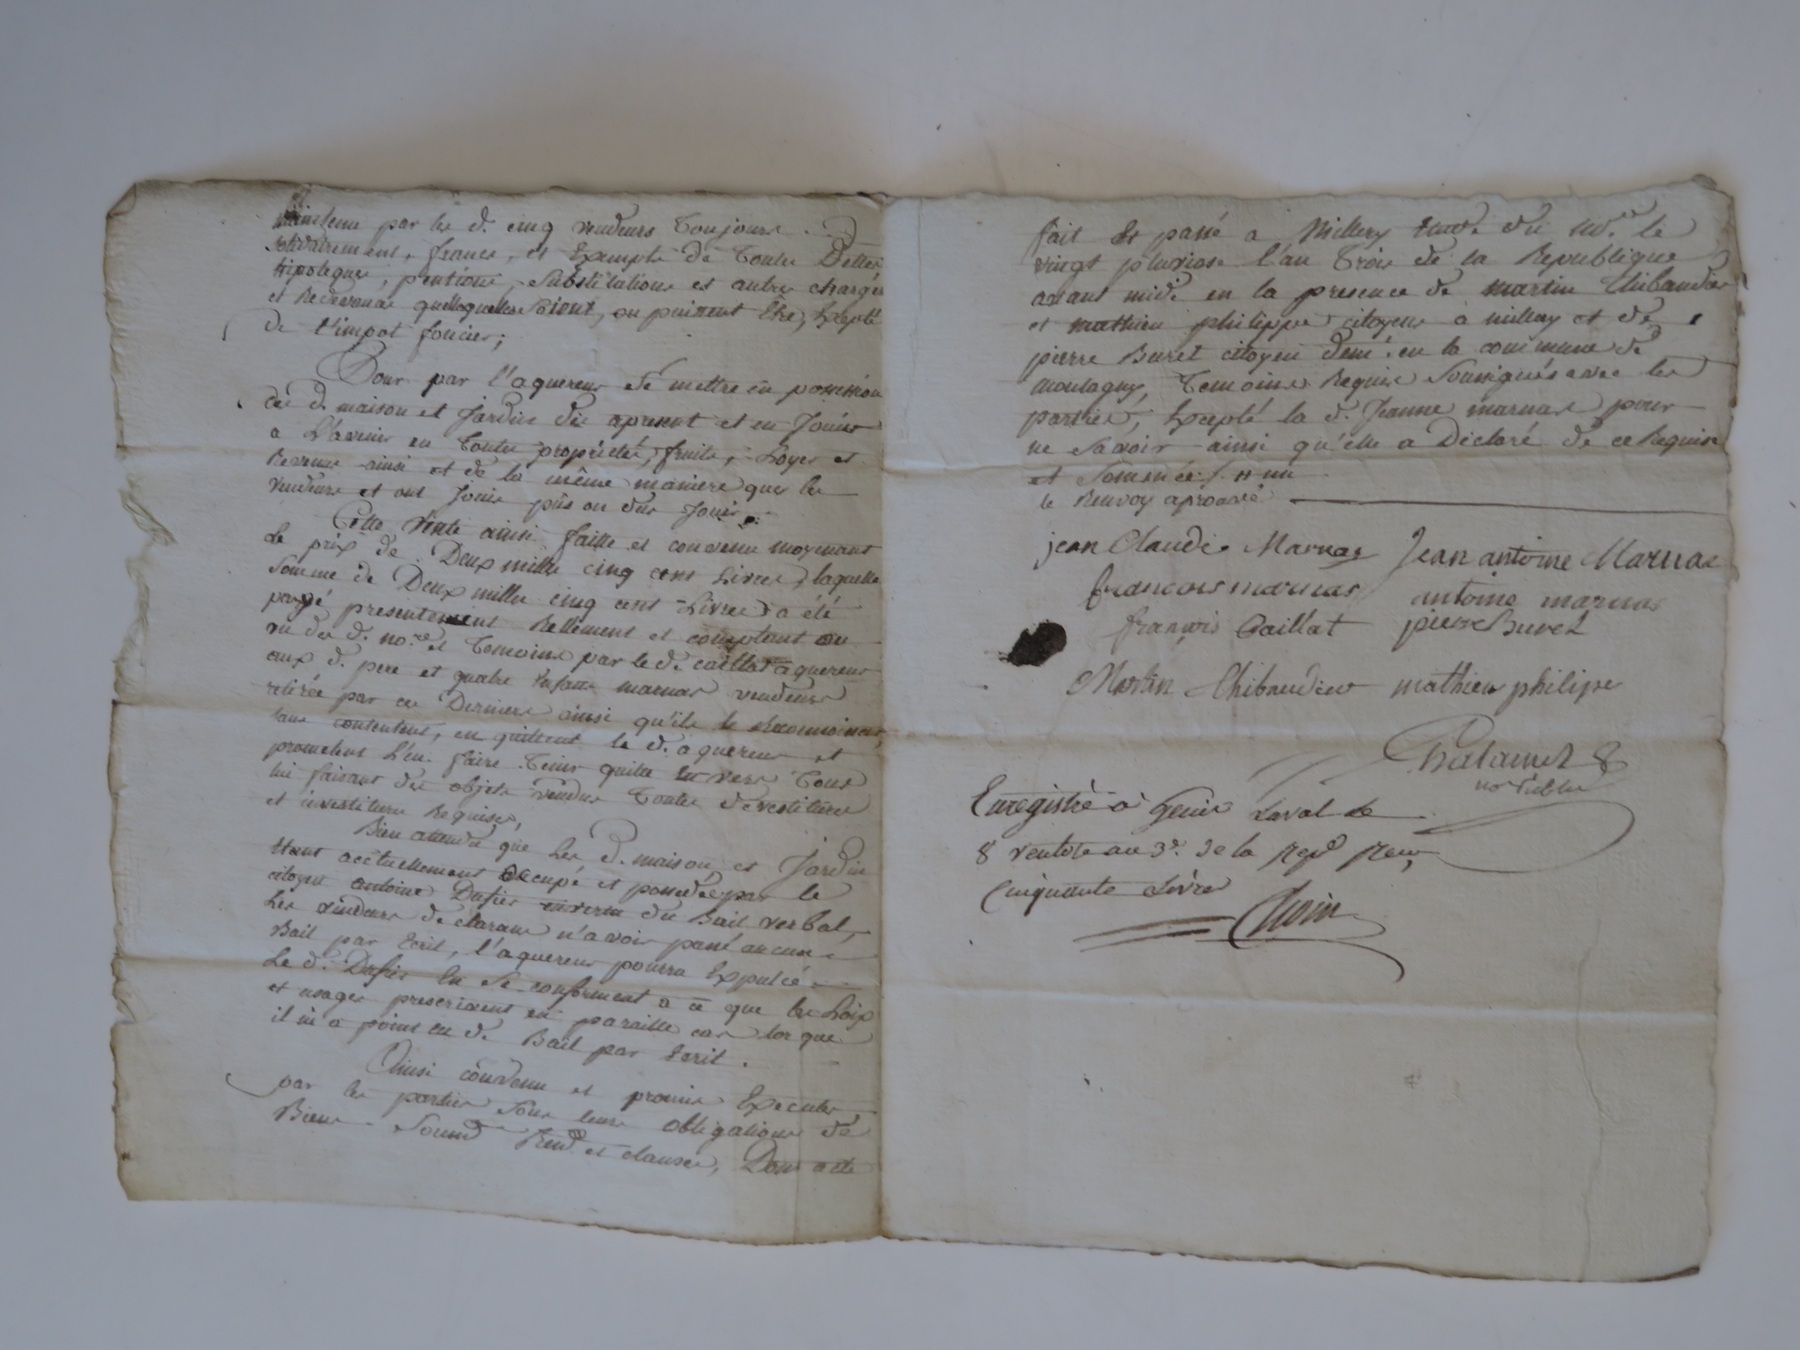 maintenu par les d. cinq vendeurs Toujours
solidairement, france, et Exempte de Toute Dettes
hipoteques, pentions, Substitutions et autres charges
et Redevances quelloquelles soient, ou puissent Etre, Excepté
de l'impot foncier;
Pour par l'aquereur se mettre en possession
des d. maison et Jardin dès apresent et en Jouir
a L'avenir en Toutte propriétés, fruits, Loyer et
Revenus ainsi et de la même maniere que les
vendeurs et ont Jouis pûs ou dus Jouir.
Cette vente ainsi faitte et convenu moyennant
Le prix de Deux mille cinq cent Livres, laquelle
Somme de Deux milles cinq cent Livres a été
payé presentement Rellement et comptant au
vu du d. no.re et Temoins par le d. caillat aquereur
aux d. pere et quatre Enfants marnas vendeurs
retirée par ces Derniers ainsi qu'ils le Reconnoissent,
sans contentent, en quittent le d. aquereur et
promettent L'en faire Tenir quitte Envers Tous
lui faisant des objets vendus Toutes devestiture
et investiture Requises,
Bien attendu que Les d. maison, et Jardin
Etant actuellement occupé et possedée par le
citoyen antoine Dufier en vertu du Bail verbal,
Les vendeurs declarant n'avoir passé aucun
Bail par Ecrit, l'aquereur pourra Expulcé
Le d. Dufier En Se conforment a ce que les Loix
et usages prescrivent en paraille cas lorque
il ni a point eu de Bail par Ecrit.
Ainsi convenu et promis Executer
par les parties sous leurs obligations de
Biens Soumd Rend et clauses, Dont acte
fait Et passé a Millery Etude du no.re le
vingt pluviose l'an Trois de la Republique
avant midi en la presence de martin Thibaudier
et mathieu philippe citoyens a millery et de
pierre Buret citoyen demt. en la commune de
montagny, Temoins Requis Soussignés avec les
parties, Excepté la d. Jeanne marnas pour
ne Savoir ainsi qu'elle a Déclaré de ce Requise
et Sommée
le Renvoy aprouvé
jean Claude Marnas Jean antoine Marnas
francois marnas antoine marnas
françois Caillat pierre Buret
Martin Thibaudier mathieu philipe
no. Public
Enregistré a Genis Laval le
8 ventose an 3e. de la Repe. Reçu
Cinquante Livres